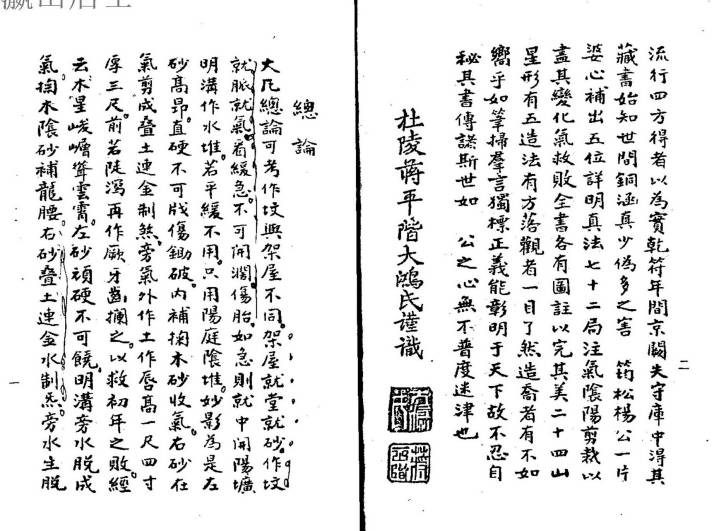 流行四方得者以為寶乾符年間京闕失守庫中得其
藏書始知世間銅函真少偽多之害 筠松楊公一片
婆心補出五位詳明真法七十二局注氣陰陽剪裁以
盡其變化氣救敗全書各有圖註以完其美二十四山
星形有五造法有方落觀者一目了然造喬者有不如
嚮乎如筆掃羣言獨標正義能彰明于天下故不忍自
秘其書傳諸斯世如 公之心無不普度迷津也
杜陵蔣平階大鴻氏謹識
二
總論
大凡總論可考作坟與架屋不同架屋就堂就砂作坟
就脈就氣看緩急不可開濶傷胎如急則就中開陽壙
明溝作水堆若平緩不用只用陽庭陰堆妙影為是左
砂高昂直硬不可戕傷鋤破內補掏木砂收氣右砂在
氣剪成叠土連金制煞旁氣外作土作唇高一尺四寸
厚三尺前若陡瀉再作厥牙齒攔之以救初年之敗經
云木星峻嶒聳雲霄左砂頑硬不可饒明溝旁水脱成
氣掏木陰砂補龍腰右砂叠土連金水制炁旁水生脱
一